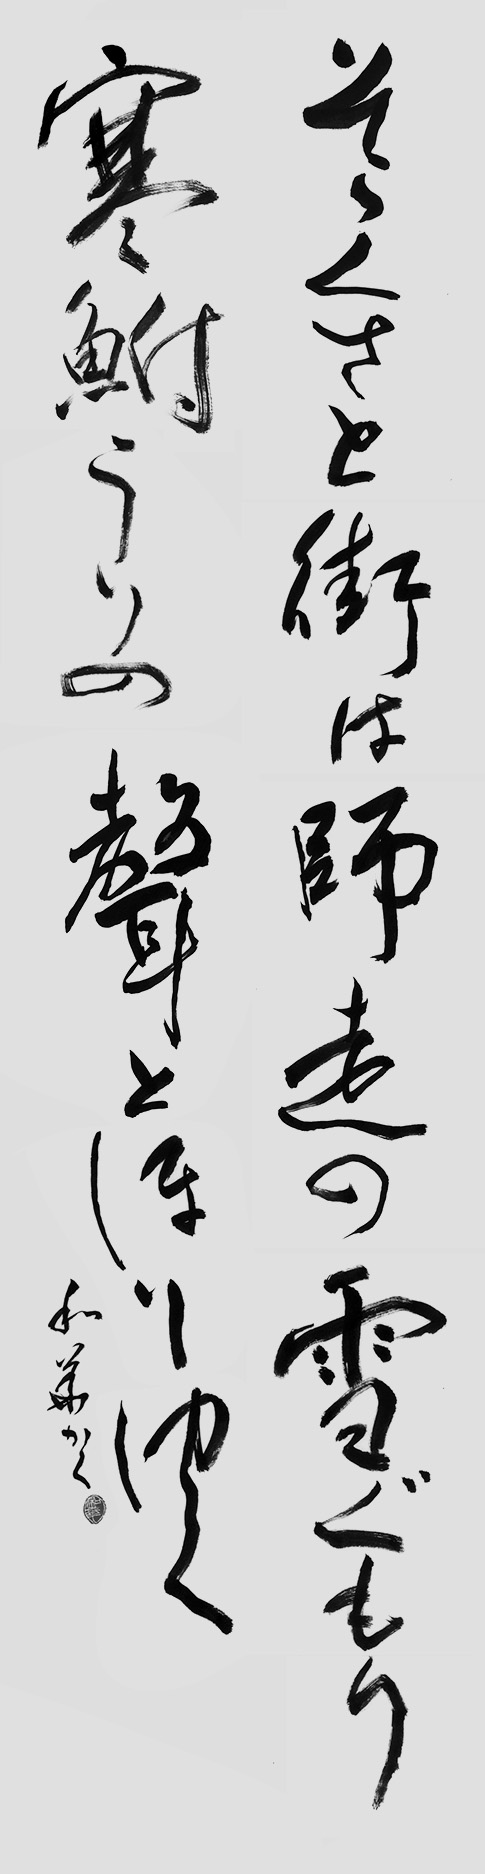 そゝくさと街は師走の雪ぐもり
寒鮒うりの聲とほりゆく
和華かく